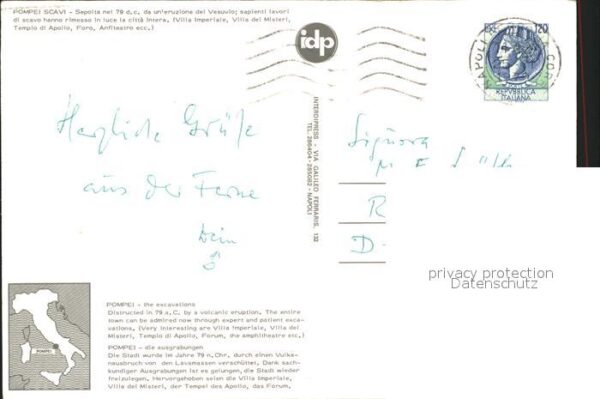 POMPEI SCAVI - Sepolta nel 79 d.c. da un'eruzione del Vesuvio; sapienti lavori
di scavo hanno rimesso in luce la città intera. (Villa Imperiale, Villa dei Misteri,
Tempio di Apollo, Foro, Anfiteatro ecc.)
idp
120
NAPOLI
REPUBBLICA
ITALIANA
INTERDIPRESS - VIA GALILEO FERRARIS, 132
NAPOLI
Herzliche Grüße
aus der Ferne
Dein
Signora
R
D.
privacy protection
Datenschutz
POMPEI
POMPEI - the excavations
Distructed in 79 a.C. by a volcanic eruption. The entire
town can be admired now through expert and patient exca-
vations. (Very interesting are Villa Imperiale, Villa dei
Misteri, Tempio di Apollo, Forum, the amphitheatre ecc.)
POMPEI - die ausgrabungen
Die Stadt wurde im Jahre 79 n. Chr. durch einen Vulka-
nausbruch von den Lavamassen verschüttet. Dank sach-
kundiger Ausgrabungen ist es gelungen, die Stadt wieder
freizulegen. Hervorgehoben seien die Villa Imperiale,
Villa dei Misteri, der Tempel des Apollo, das Forum,